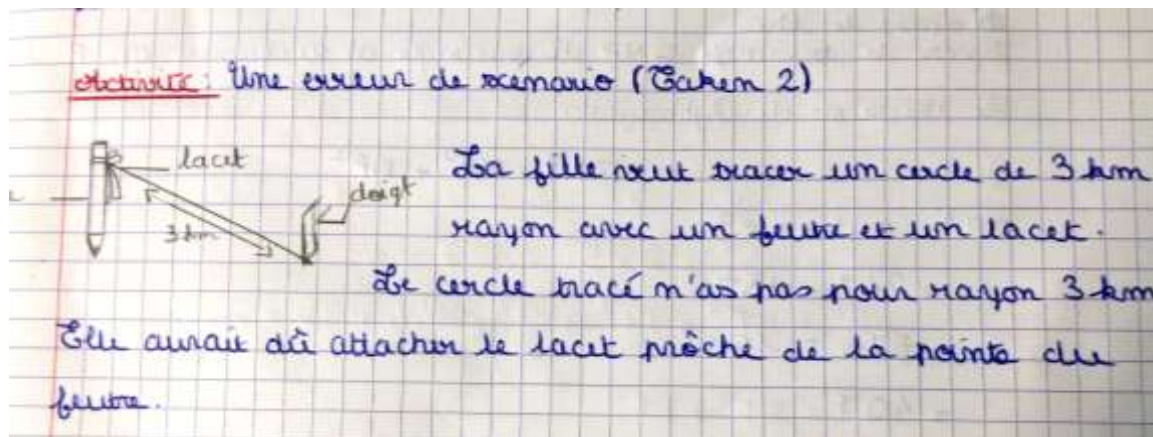 Activité : Une erreur de scénario (Taken 2)
lacet
doigt
3 km
La fille veut tracer un cercle de 3 km
rayon avec un feutre et un lacet.
Le cercle tracé n'as pas pour rayon 3 km
Elle aurait dû attacher le lacet prôche de la pointe du
feutre.